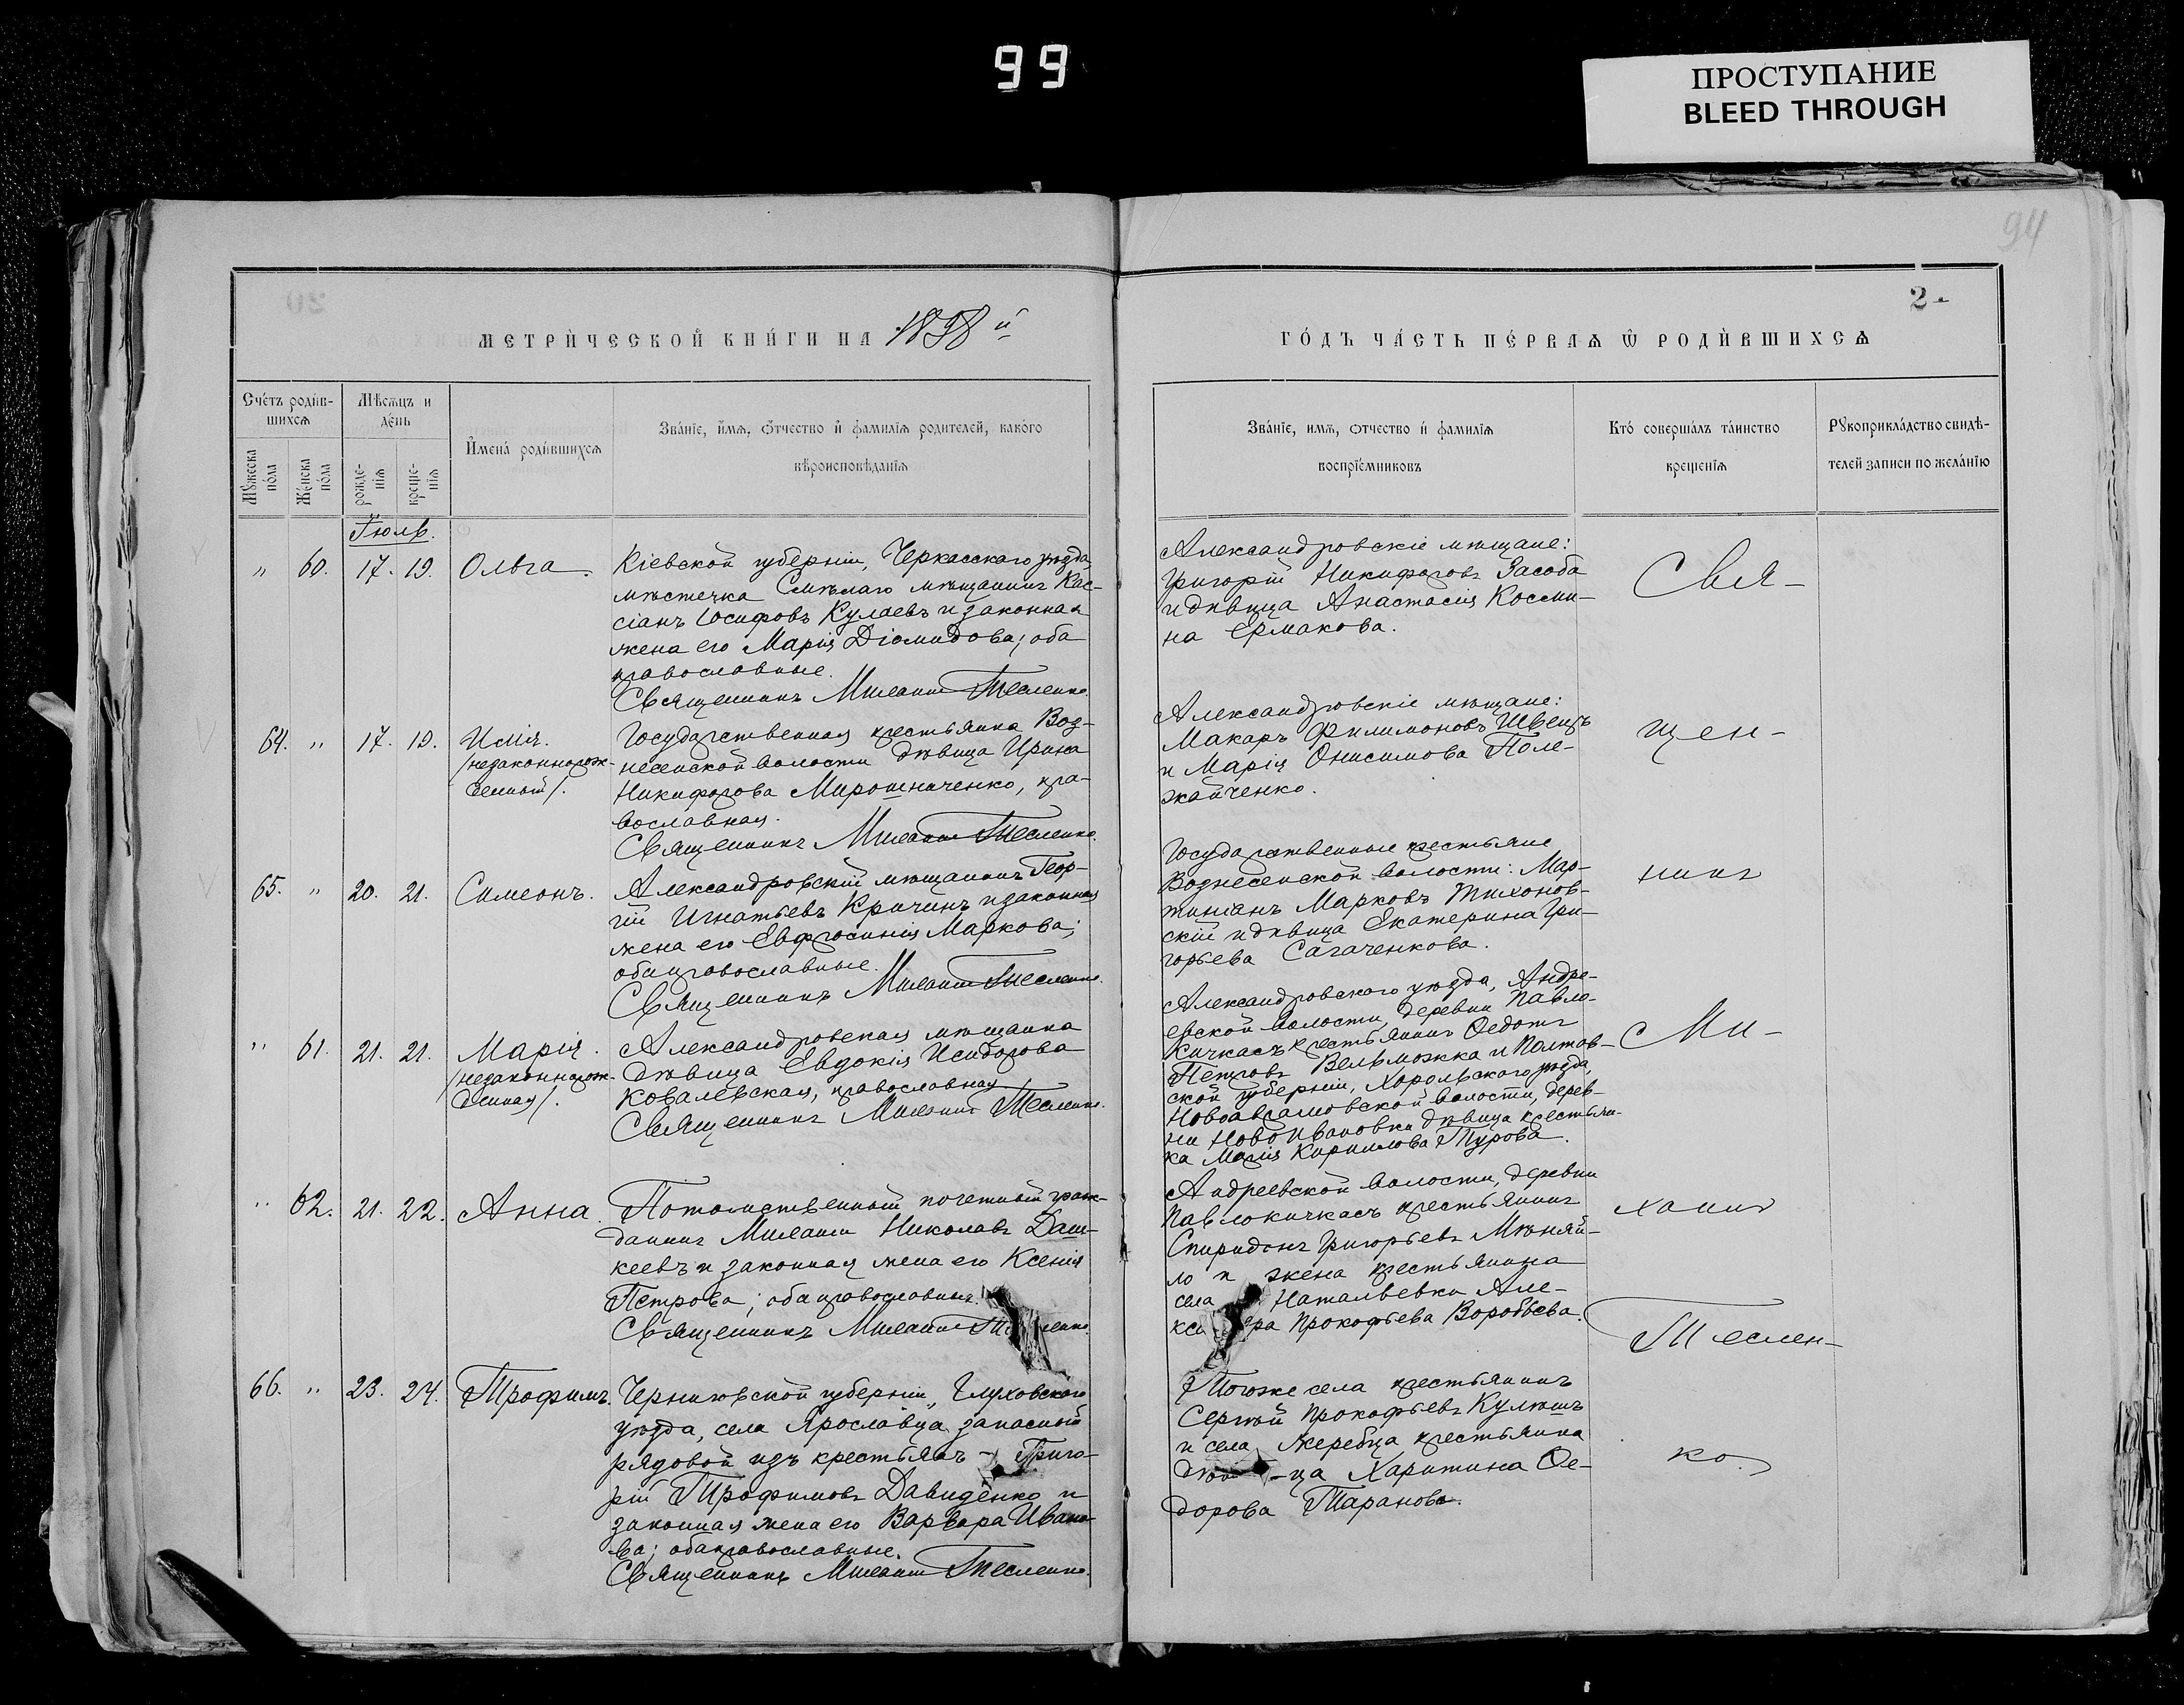 99
ПРОСТУПАНИЕ
BLEED THROUGH
94
2-
МЕТРИЧЕСКОЙ КНИГИ НА 1898й
ГОДЪ ЧАСТЬ ПЕРВАЯ Ѿ РОДИВШИХСЯ
Счетъ родив-
шихся
Мѣсяцъ и
день
Мужеска
пола
Женска
пола
рожде-
нія
креще-
нія
Имена родившихся
Званіе, имя, отчество и фамилія родителей, какого
вѣроисповѣданія
Званіе, имя, отчество и фамилія
воспріемниковъ
Кто совершалъ таинство
крещенія
Рукоприкладство свидѣ-
телей записи по желанію
Іюль.
" 60. 17. 19. Ольга.
Кіевской губерніи, Черкасскаго уѣзда,
мѣстечка Смѣлаго мѣщанинъ Кас-
сіанъ Іосифовъ Кулаевъ и законная
жена его Марія Діомидова; оба
православные.
Священникъ Милетій Тесленко.
Александровскіе мѣщане:
Григорій Никифоровъ Засоба
и дѣвица Анастасія Косми-
на Ермакова.
Свя-
64. " 17. 19. Илія.
/незаконнорож-
денный/.
Государственная крестьянка Воз-
несенской волости дѣвица Ирина
Никифорова Мирошниченко, пра-
вославная.
Священникъ Милетій Тесленко.
Александровскіе мѣщане:
Макаръ Филимоновъ Швецъ
и Марія Онисимова Поле-
жайченко.
щен-
65. " 20. 21. Симеонъ.
Александровскій мѣщанинъ Геор-
гій Игнатьевъ Кричинъ и законная
жена его Евфросинія Маркова;
оба православные.
Священникъ Милетій Тесленко.
Государственные крестьяне
Вознесенской волости: Мар-
тиніанъ Марковъ Тихонов-
скій и дѣвица Екатерина Гри-
горьева Сагаченкова.
никъ
" 61. 21. 21. Марія.
/незаконнорож-
денная/.
Александровская мѣщанка
дѣвица Евдокія Исидорова
Ковалевская, православная
Священникъ Милетій Тесленко.
Александровскаго уѣзда, Андре-
евской волости, деревни Павло-
Кичкасъ крестьянинъ Ѳедотъ
Петровъ Вельможка и Полтав-
ской губерніи, Хорольскаго уѣзда,
Новоаврамовской волости, дерев-
ни Новоивановки дѣвица крестьян-
ка Марія Кириллова Турова.
Ми-
" 62. 21. 22. Анна.
Потомственный почетный граж-
данинъ Милетій Николаевъ Даш-
кеевъ и законная жена его Ксенія
Петрова; оба православные.
Священникъ Милетій Тесленко.
Андреевской волости, деревни
Павлокичкасъ крестьянинъ
Спиридонъ Григорьевъ Мѣняй-
ло и жена крестьянина
села Натальевки Але-
кса ра Прокофьева Воробьева.
хаилъ
Теслен-
66. " 23. 24. Трофимъ.
Черниговской губерніи, Глуховскаго
уѣзда, села Ярославца, запасный
рядовой изъ крестьянъ - Григо-
рій Трофимовъ Давиденко и
законная жена его Варвара Ивано-
ва; оба православные.
Священникъ Милетій Тесленко.
Того же села крестьянинъ
Сергѣй Прокофьевъ Кулишъ
и села Жеребца крестьянка
дѣви-ца Харитина Ѳе-
дорова Таранова.
ко.